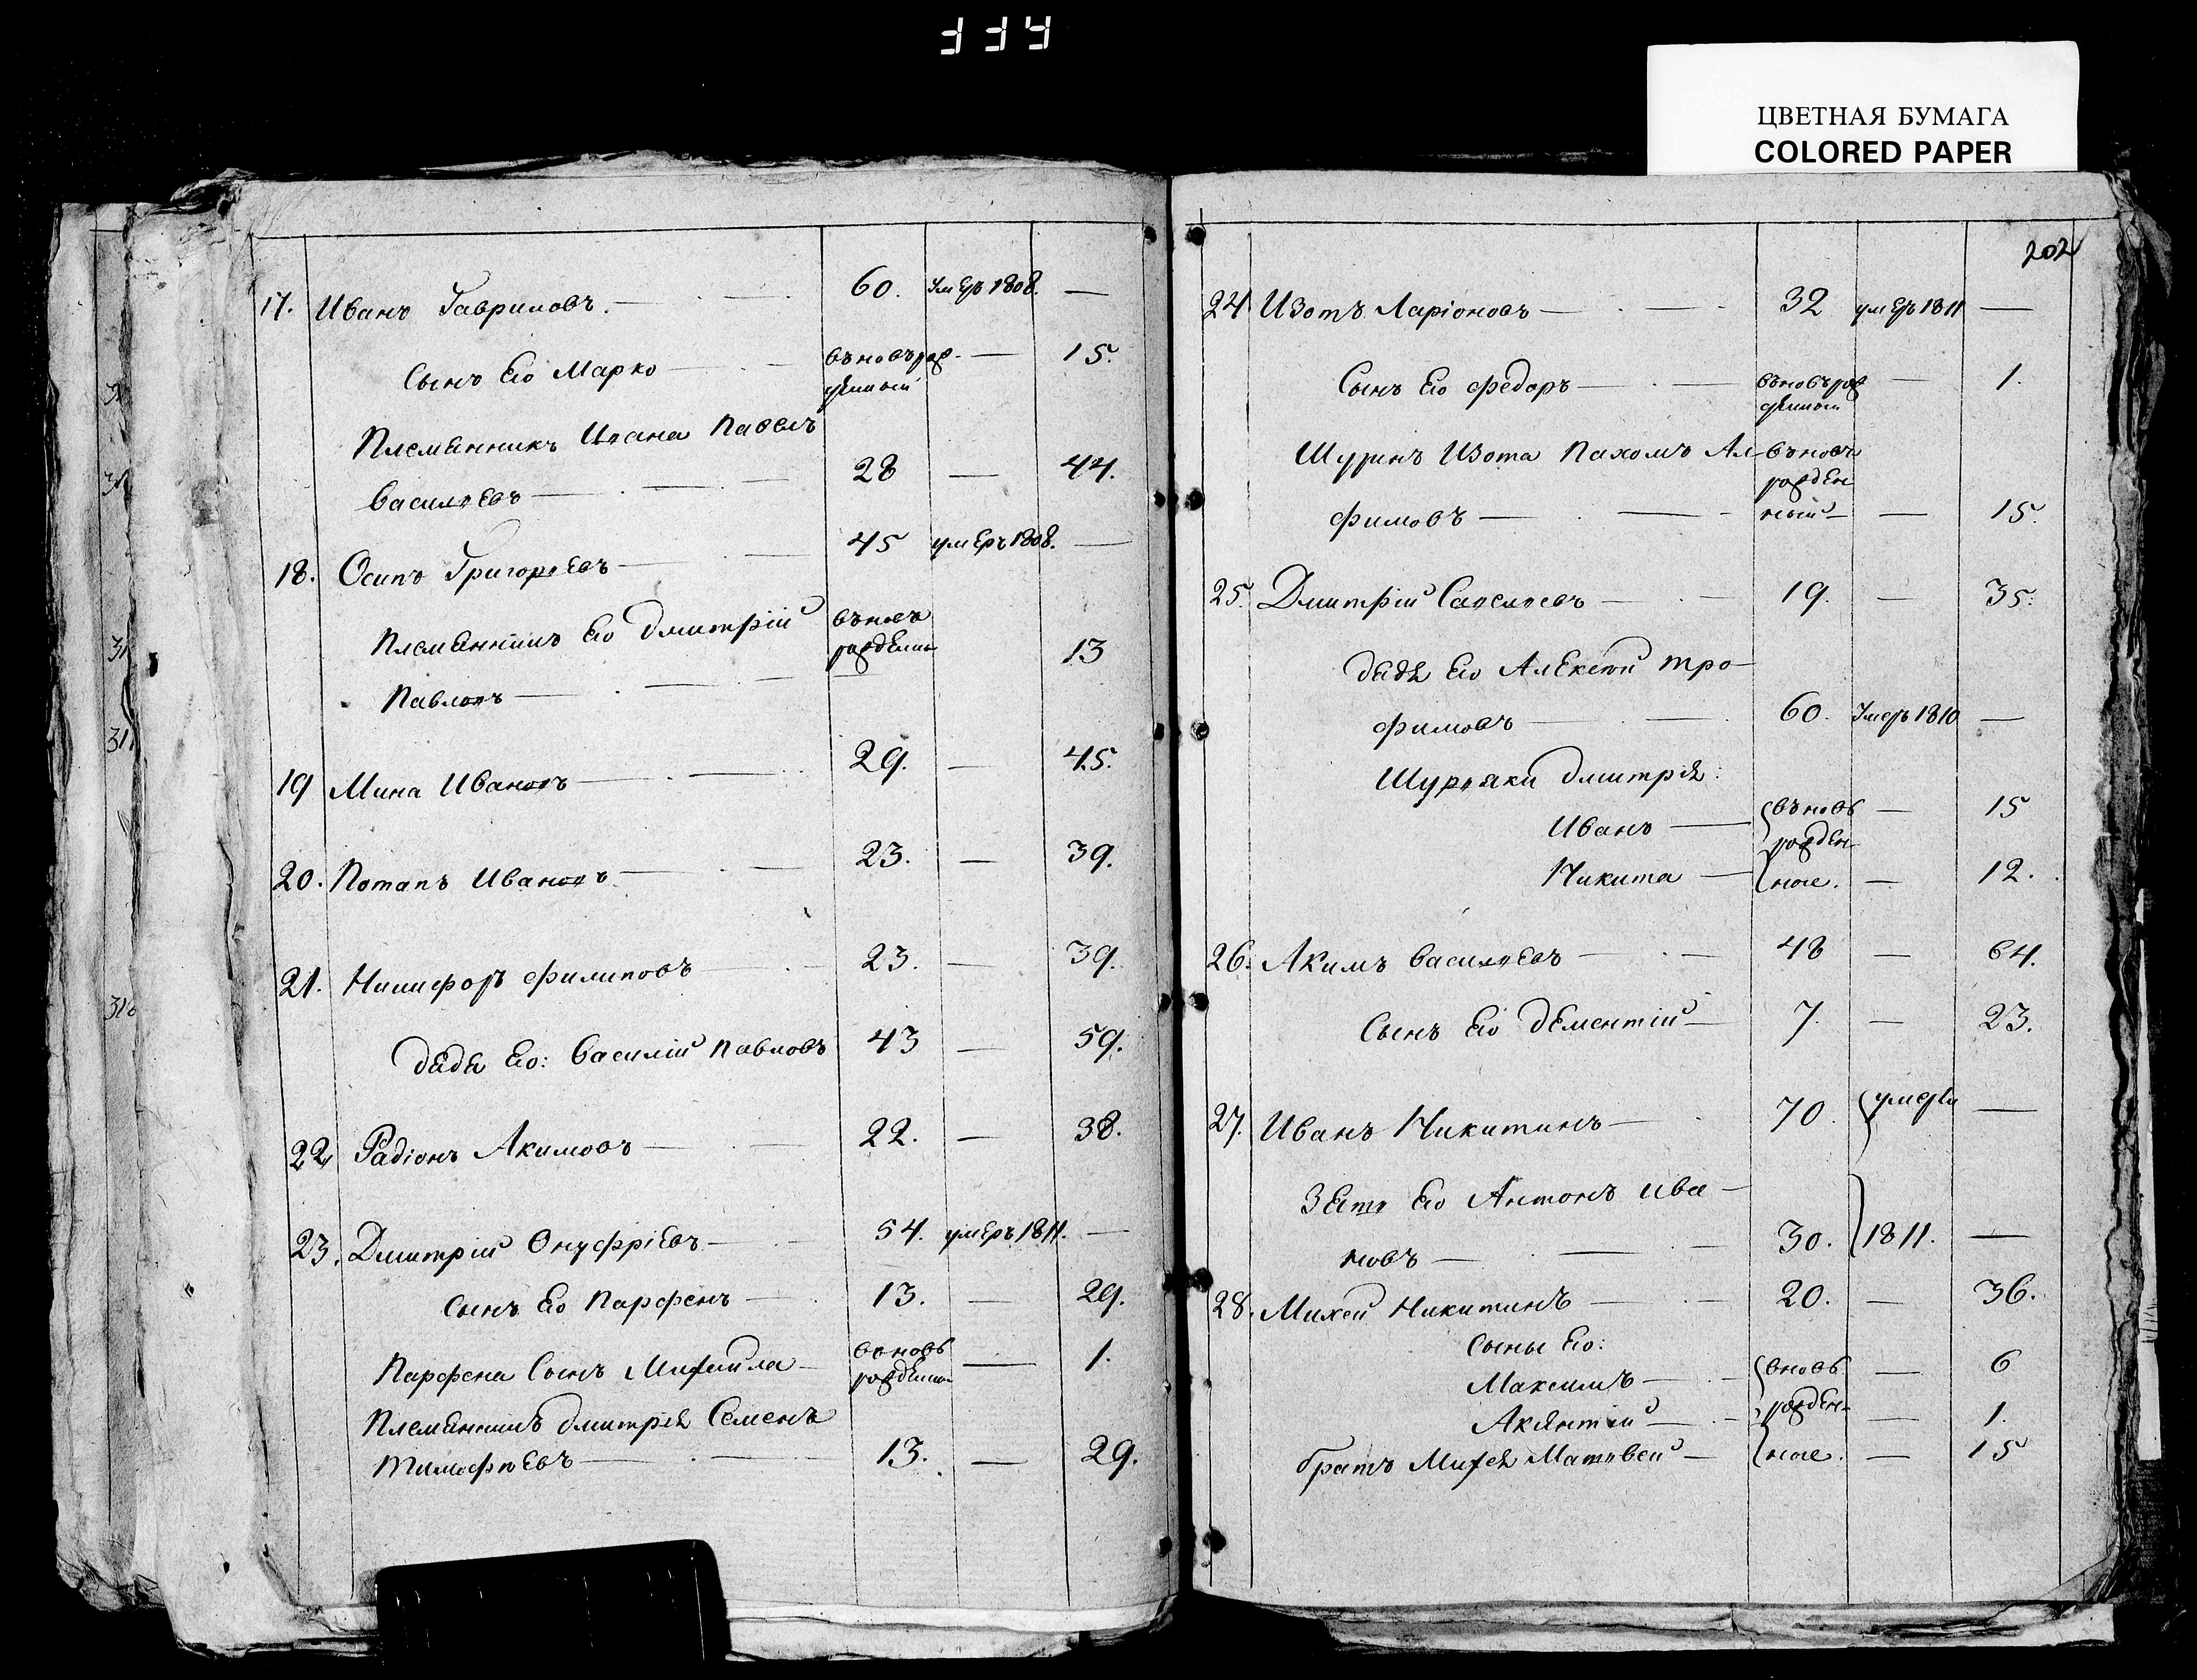 ЦВЕТНАЯ БУМАГА
COLORED PAPER
17. Иванъ Гавриловъ. 60. Умеръ 1808. —
Сынъ Его Марко въновърож- — 15.
денный
Племянникъ Ивана Павелъ
Васильевъ 28 — 44.
18. Осипъ Григорьевъ 45 умеръ 1808. —
Племянникъ Его Дмитрій въновь
рожденны 13
Павловъ
19 Мина Ивановъ 29. — 45.
20. Потапъ Ивановъ 23. — 39.
21. Никифоръ Филиповъ 23. — 39.
дядя Его: Василій Павловъ 43 — 59.
22. Радіонъ Акимовъ 22. — 38.
23. Дмитрій Онуфріевъ 54. умеръ 1811. —
Сынъ Его Парфенъ 13. — 29.
Парфена Сынъ Михайла вновь — 1.
рожденны
Племянникъ Дмитрія Семенъ
Тимофѣевъ 13. — 29.
202
24. Изотъ Ларіоновъ 32 умеръ 1811 —
Сынъ Его Федоръ въновърож — 1.
денный
Шуринъ Изота Пахомъ Ал- въновь
рожден
фимовъ ный — 15.
25. Дмитрій Савельевъ 19. — 35.
дядя Его Алексѣй Тро-
фимовъ 60. Умеръ 1810 —
Шурьяки Дмитрія:
Иванъ въновь — 15
рожден
Никита ные. — 12.
26. Акимъ Васильевъ 48 — 64.
Сынъ Его Дементій 7. — 23.
27. Иванъ Никитинъ 70. умерли —
Зять Его Антонъ Ива-
новъ 30. 1811. —
28. Михей Никитинъ 20. — 36.
Сыны Его:
Максимъ вновь — 6
Аксянтій рожден- — 1.
братъ Михея Матвей ные. — 15